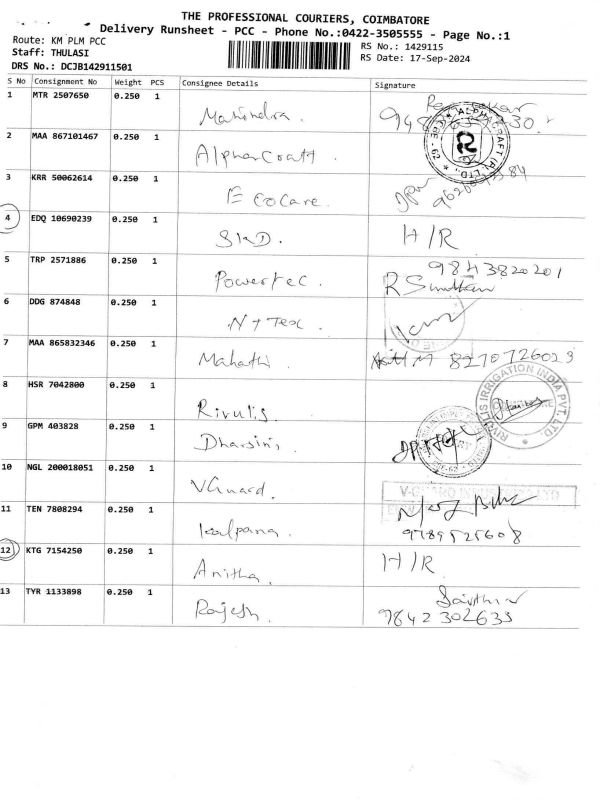 THE PROFESSIONAL COURIERS, COIMBATORE
Delivery Runsheet - PCC - Phone No.:0422-3505555 - Page No.:1
Route: KM PLM PCC
RS No.: 1429115
Staff: THULASI
RS Date: 17-Sep-2024
DRS No.: DCJB142911501
S No Consignment No Weight PCS Consignee Details Signature
1 MTR 2507650 0.250 1 Mahindra.
2 MAA 867101467 0.250 1 Alphacraft.
3 KRR 50062614 0.250 1 Eco Care.
4 EDQ 10690239 0.250 1 H/R
5 TRP 2571886 0.250 1 Powertec. 9843820201
6 DDG 874848 0.250 1 N + Tex.
7 MAA 865832346 0.250 1 Mahathi. 8270726023
8 HSR 7042800 0.250 1 Rivulis.
RIVULIS IRRIGATION INDIA PVT. LTD.
9 GPM 403828 0.250 1 Dharsini.
10 NGL 200018051 0.250 1 VGuard.
11 TEN 7808294 0.250 1 Kalpana. 9789525608
12 KTG 7154250 0.250 1 Anitha. H/R
13 TYR 1133898 0.250 1 Rajesh. 9842302633